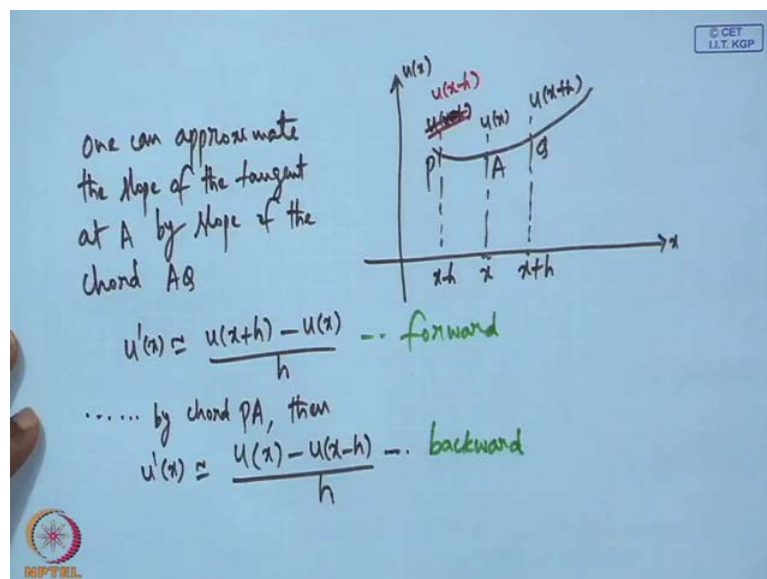 © CET
I.I.T. KGP
One can approximate
the slope of the tangent
at A by slope of the
chord AQ
u(x)
u(x-h)
u(x)
u(x+h)
P
A
Q
x-h
x
x+h
x
u'(x) ≅ u(x+h) - u(x) / h -- forward
...... by chord PA, then
u'(x) ≅ u(x) - u(x-h) / h -. backward
NPTEL